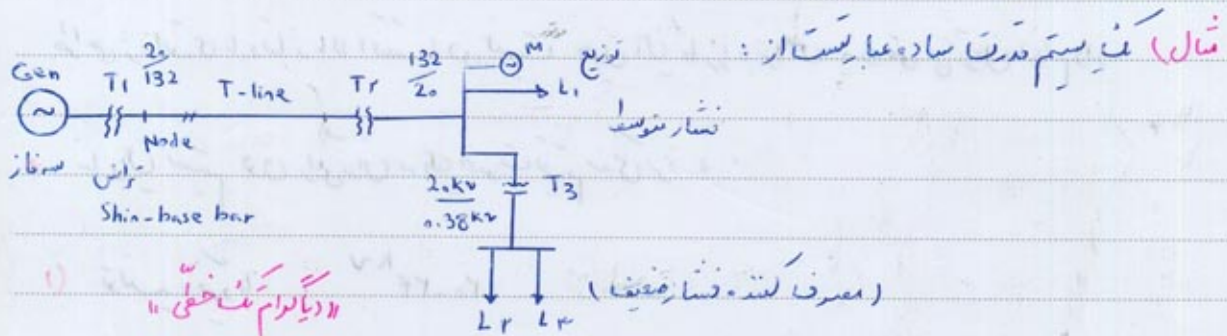 مثال) یک سیستم قدرت ساده عبارتست از :
Gen
T۱
20
132
T-line
T۲
132
20
M
توزیع
L۱
فشار متوسط
Node
سه فاز
ترانس
Shin-base bar
20kv
0.38kv
T3
(مصرف کننده فشار ضعیف)
"دیاگرام تک خطی"
L۲ L۳